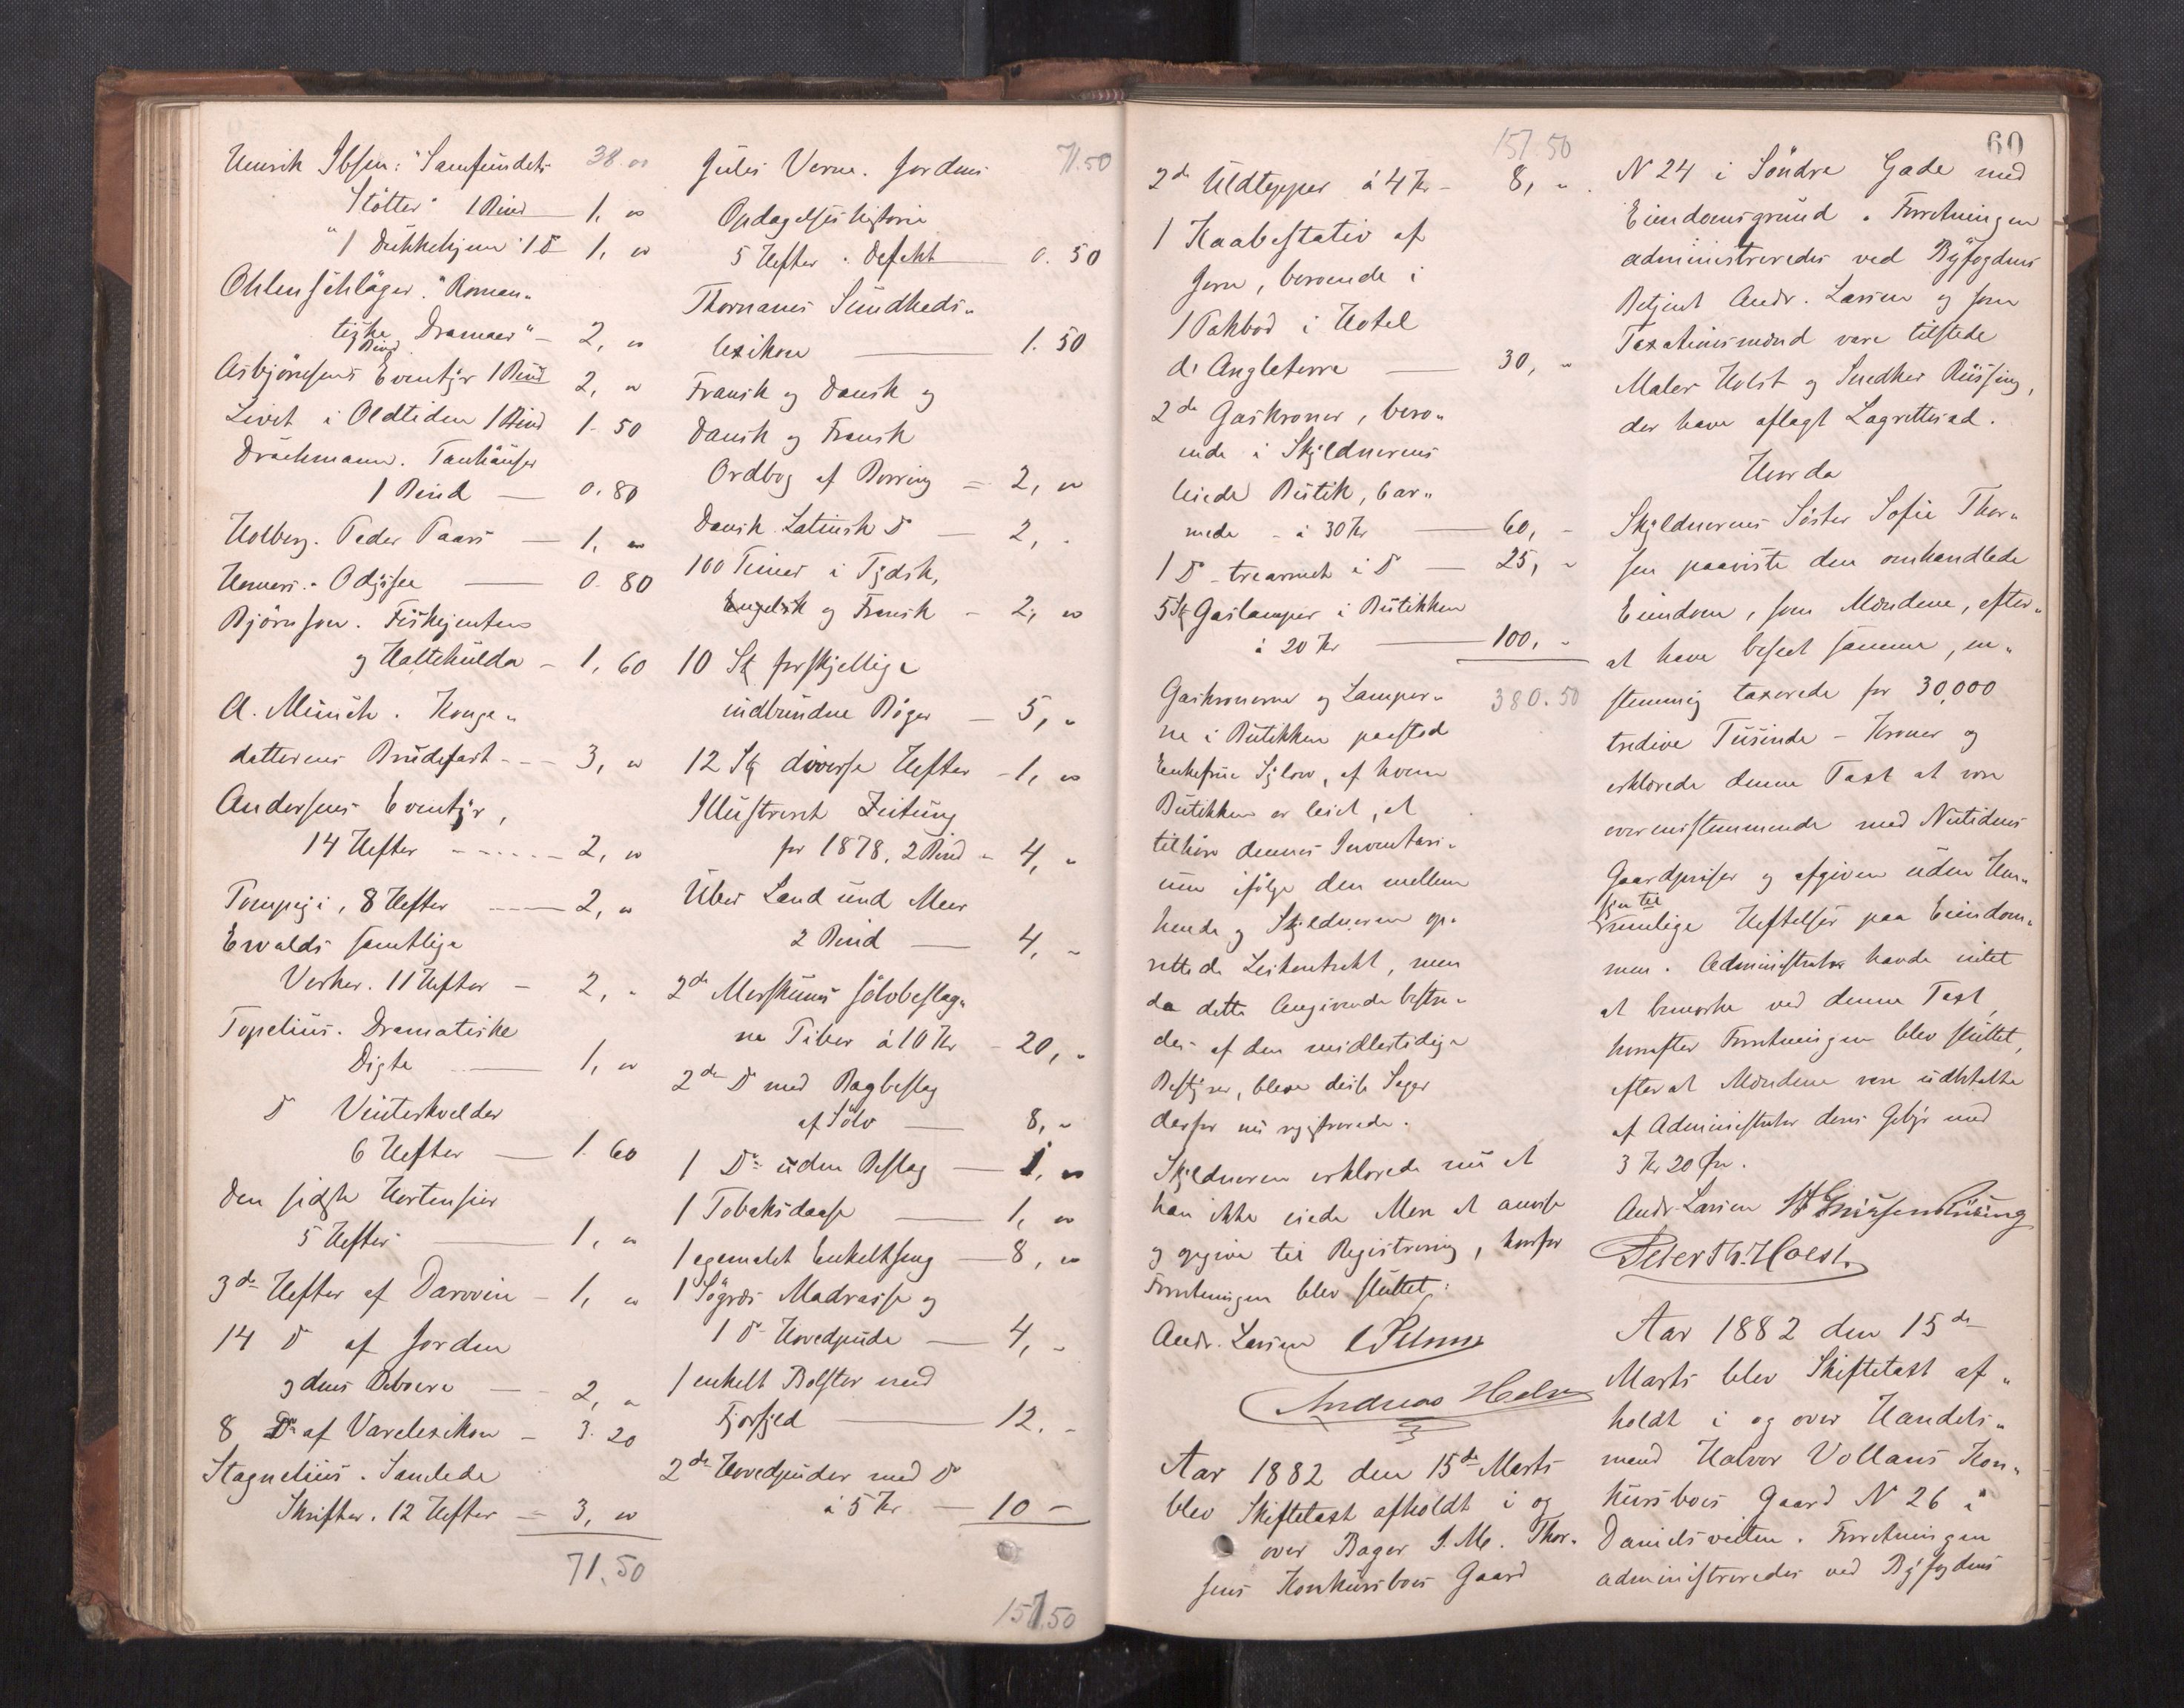 Henrik Ibsen: "Samfundets 38.00
Støtter" 1 Bind — 1, "
"Et Dukkehjem" 1 D — 1, "
Ohlenschläger. "Roman„
tiske Dramaer" — 2, "
1 Bind
Asbjørnsens Eventyr 1 Bind 2, "
Livet i Oldtiden 1 Bind 1. 50
Drachmann. Tanhäuser
1 Bind — 0. 80
Holberg. Peder Paars — 1, "
Homers. Odyssee — 0. 80
Bjørnson. Fiskejenten
og Haltehulda — 1, 60
A. Munch. Konge„
datterens Brudefart --- 3, "
Andersens Eventyr,
14 Hefter ----- 2, "
Pompeji, 8 Hefter ---- 2, "
Ewalds samtlige
Verker. 11 Hefter — 2, "
Topelius. Dramatiske
Digte — 1, "
D Vinterkvelder
6 Hefter — 1. 60
Den sidste Hortensier
5 Hefter — 1, "
3de Hefter af Darwin — 1, "
14 D af Jorden
og dens Beboere — 2, "
8 Do af Varelexikon — 3. 20
Stagnelius. Samlede
Skrifter. 12 Hefter — 3, "
71.50
Jules Verne. Jordens 71.50
Opdagelses historie
5 Hefter. Defekt — 0. 50
Thornams Sundheds„
lexikon — 1. 50
Fransk og Dansk og
Dansk og Fransk
Ordbog af Borring — 2, "
Dansk Latinsk D — 2, "
100 Timer i Tydsk,
Engelsk og Fransk — 2, "
10 St forskjellige
indbundne Bøger — 5, "
12 St diverse Hefter — 1, "
Illustreret Zeitung
for 1878, 2 Bind — 4, "
Über Land und Meer
2 Bind — 4, "
2de Merskums sølvbeslag„
ne Piber à 10 Kr — 20, "
2de D med Bagbeslag
af Sölv — 8, "
1 Do uden Beslag — 1, "
1 Tobaksdaase — 1, "
1 egemalet Enkeltseng — 8, "
1 Søgræs Madrasse og
1 D Hovedpude — 4, "
1 enkelt Bolster med
Fjorfyld — 12. "
2de Hovedpuder med D
à 5 Kr — 10 —
157.50
157.50
2de Uldtepper à 4 Kr — 8, "
1 Kaabestativ af
Jern, beroende i
1 Pakbod i Hotel
d'Angleterre — 30, "
2de Gaskroner, bero„
ende i Skyldnerens
leiede Butik, 6 ar„
mede — à 30 Kr — 60, "
1 D — trearmet i D — 25, "
5 St Gaslamper i Butikken
à 20 Kr — 100, "
Gaskronerne og Lamper„ 380.50
ne i Butikken paastod
Enkefrue Sylow, af hvem
Butikken er leiet, at
tilhøre dennes Inventari„
um ifølge den mellem
hende og Skyldneren op„
rettede Leikontrakt, men
da dette Angivende bestri„
des af den midlertidige
Bestyrer, bleve disse Sager
derfor nu registrerede.
Skyldneren erklærede nu at
han ikke eiede Mere at anvise
og opgive til Registrering, hvorfor
Forretningen blev sluttet:
Andr. Larsen
Andreas Holm
Aar 1882 den 15de Marts
blev Skiftetaxt afholdt i og
over Bager J. M. Thor„
sens Konkursbos Gaard
60
N 24 i Söndre Gade med
Eiendomsgrund. Forretningen
administreredes ved Byfogdens
Betjent Andr. Larsen og som
Taxationsmænd vare tilstede
Maler Holst og Snedker Rüsing,
der have aflagt Lagretteseed.
Hvorda
Skyldnerens Söster Sofie Thor„
sen paaviste den omhandlede
Eiendom, som Mændene, efter„
at have beseet samme, en„
stemmig taxerede for 30,000
tredive Tusinde — Kroner og
erklærede denne Taxt at være
overensstemmende med Nutidens
Gaardpriser og afgiven uden Hen„
syn til
mulige Heftelser paa Eiendom„
men. Administrator havde intet
at bemærke ved denne Taxt,
hvorefter Forretningen blev sluttet,
efter at Mændene vare udbetalte
af Administrator deres Gebyr med
3 Kr 20 Öre.
Andr. Larsen
Peter Th. Holst.
Aar 1882 den 15de
Marts blev Skiftetaxt af„
holdt i og over Handels„
mand Halvor Vollans Kon„
kursbos Gaard N 26 i
Danielsveiten. Forretningen
administreredes ved Byfogdens